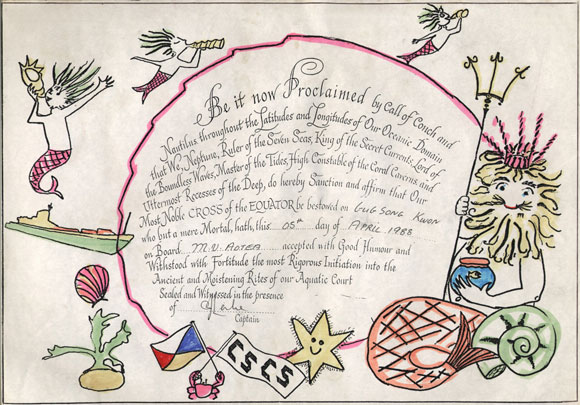 Be it now Proclaimed by Call of Conch and
Nautilus throughout the Latitudes and Longitudes of Our Oceanic Domain
that We, Neptune, Ruler of the Seven Seas, King of the Secret Currents, Lord of
the Boundless Waves, Master of the Tides, High Constable of the Coral Caverns and
Uttermost Recesses of the Deep, do hereby Sanction and affirm that Our
Most Noble CROSS of the EQUATOR be bestowed on GUG SONG KWON
who but a mere Mortal, hath, this 05th day of APRIL 1988
on Board M.V. AOTEA accepted with Good Humour and
Withstood with Fortitude the most Rigorous Initiation into the
Ancient and Moistening Rites of our Aquatic Court
Sealed and Witnessed in the presence
of
Captain
CSCS